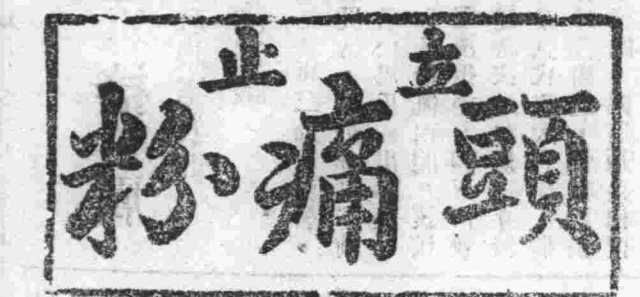 立止
頭痛粉